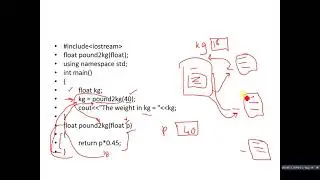 #include<iostream>
float pound2kg(float);
using namespace std;
int main()
{
float kg;
kg = pound2kg(40);
cout<<"The weight in kg = "<<kg;
}
float pound2kg(float p)
{
return p*0.45;
}
kg 18
P 40